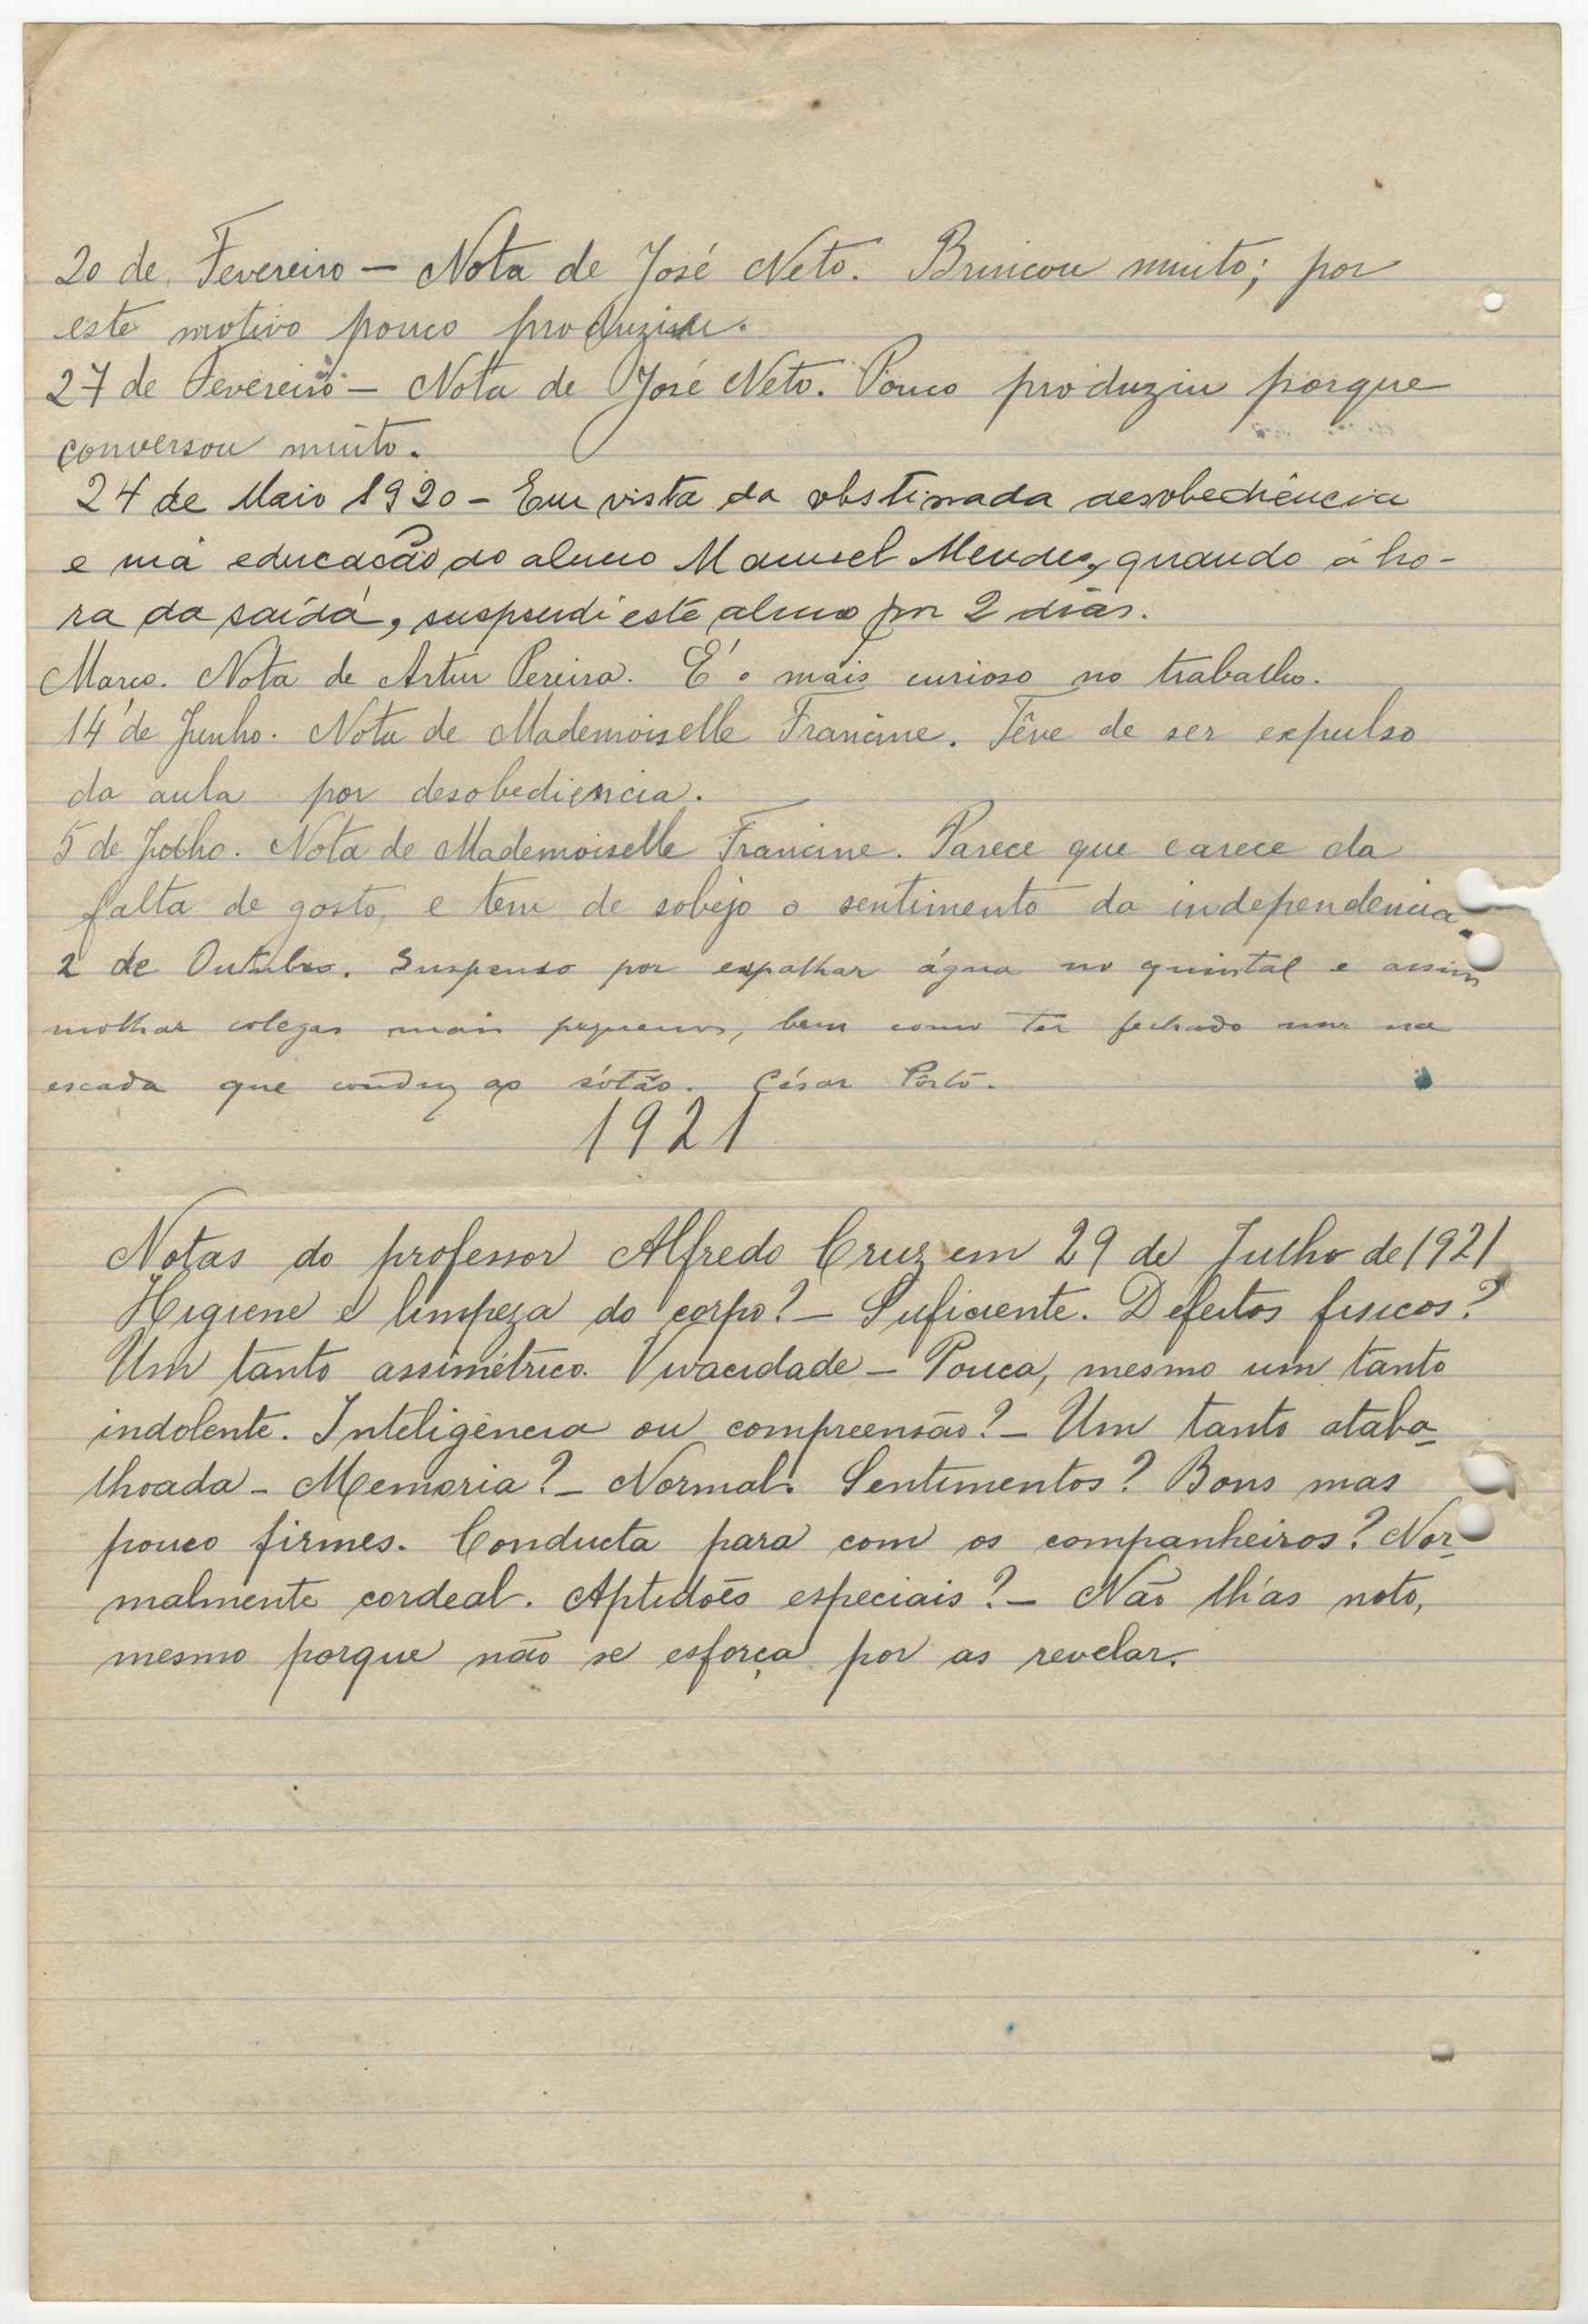 20 de Fevereiro — Nota de José Neto. Brincou muito; por
este motivo pouco produziu.
27 de Fevereiro — Nota de José Neto. Pouco produziu porque
conversou muito.
24 de Maio 1920 - Em vista da obstinada desobediência
e má educação do aluno Manuel Mendes, quando á ho-
ra da saída, suspendi este aluno por 2 dias.
Março. Nota de Artur Pereira. É o mais curioso no trabalho.
14 de Junho. Nota de Mademoiselle Francine. Têve de ser expulso
da aula por desobediencia.
5 de Julho. Nota de Mademoiselle Francine. Parece que carece da
falta de gosto, e tem de sobejo o sentimento da independencia.
2 de Outubro. Suspenso por espalhar água no quintal e assim
molhar colegas mais pequenos, bem como ter fechado um na
escada que conduz ao sótão. César Pôrto.
1921
Notas do professor Alfredo Cruz em 29 de Julho de 1921
Higiene e limpeza do corpo? — Suficiente. Defeitos fisicos?
Um tanto assimétrico. Vivacidade — Pouca, mesmo um tanto
indolente. Inteligência ou compreensão? — Um tanto ataba-
lhoada - Memoria? — Normal. Sentimentos? Bons mas
pouco firmes. Conducta para com os companheiros? Nor-
malmente cordeal. Aptidões especiais? — Não lh'as noto,
mesmo porque não se esforça por as revelar.